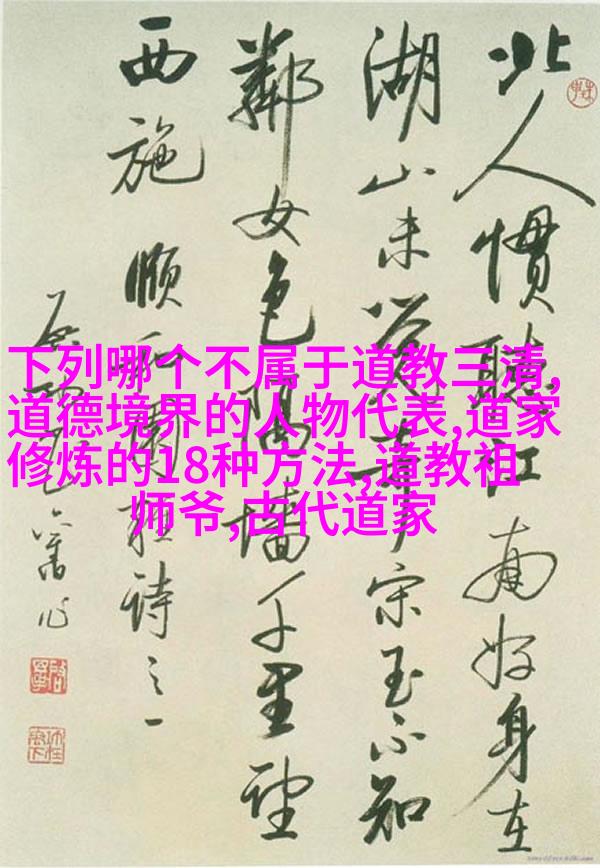 下列哪个不属于道教三清,
道德境界的人物代表,道家
修炼的18种方法,道教祖
师爷,古代道家
北人慣聽江南好身在
湖山未宋玉不知
鄰女色隔墻千里望
西施 頤和園雜詩之一
舊作